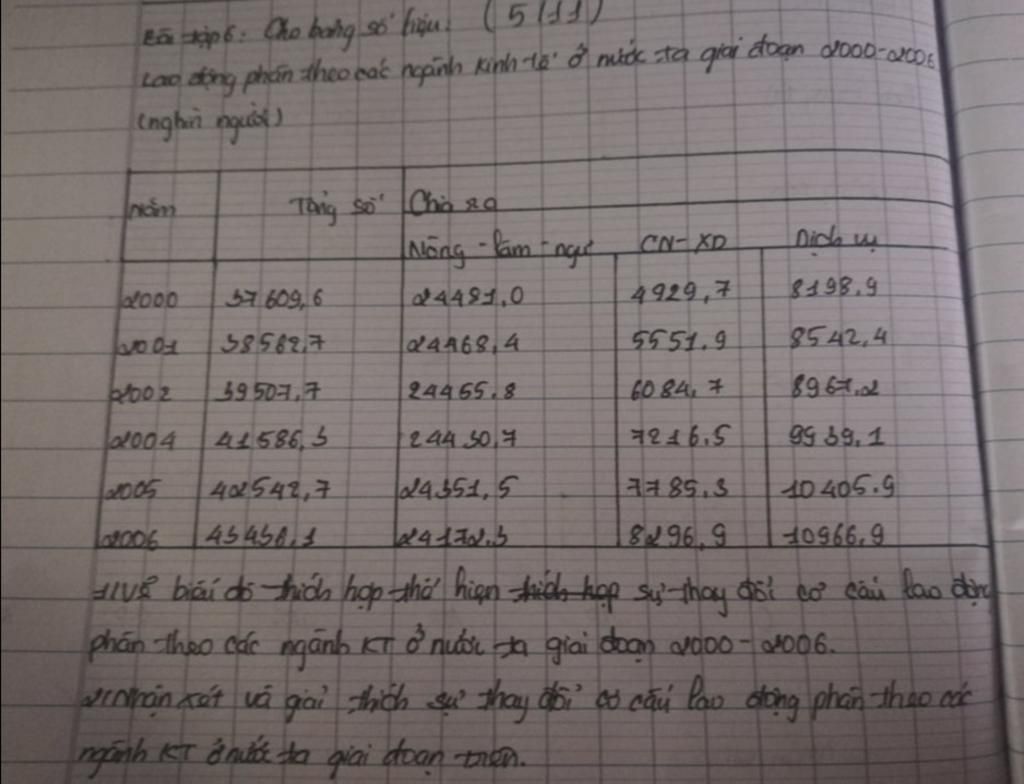 Bài tập 6: Cho bảng số liệu: (5/11)
Lao động phân theo các ngành kinh tế ở nước ta giai đoạn 2000-2006
(nghìn người)
Năm Tổng số Chia ra
Nông-lâm-ngư CN-XD Dịch vụ
2000 37609,6 24481,0 4929,7 8198,9
2001 38562,7 24468,4 5551,9 8542,4
2002 39507,7 24455,8 6084,7 8967,2
2004 41586,3 24430,7 7216,5 9939,1
2005 42542,7 24351,5 7785,3 10405,9
2006 43436,1 24172,3 8296,9 10966,9
1) Vẽ biểu đồ thích hợp thể hiện thích hợp sự thay đổi cơ cấu lao động
phân theo các ngành KT ở nước ta giai đoạn 2000-2006.
2) Nhận xét và giải thích sự thay đổi cơ cấu lao động phân theo các
ngành KT ở nước ta giai đoạn trên.